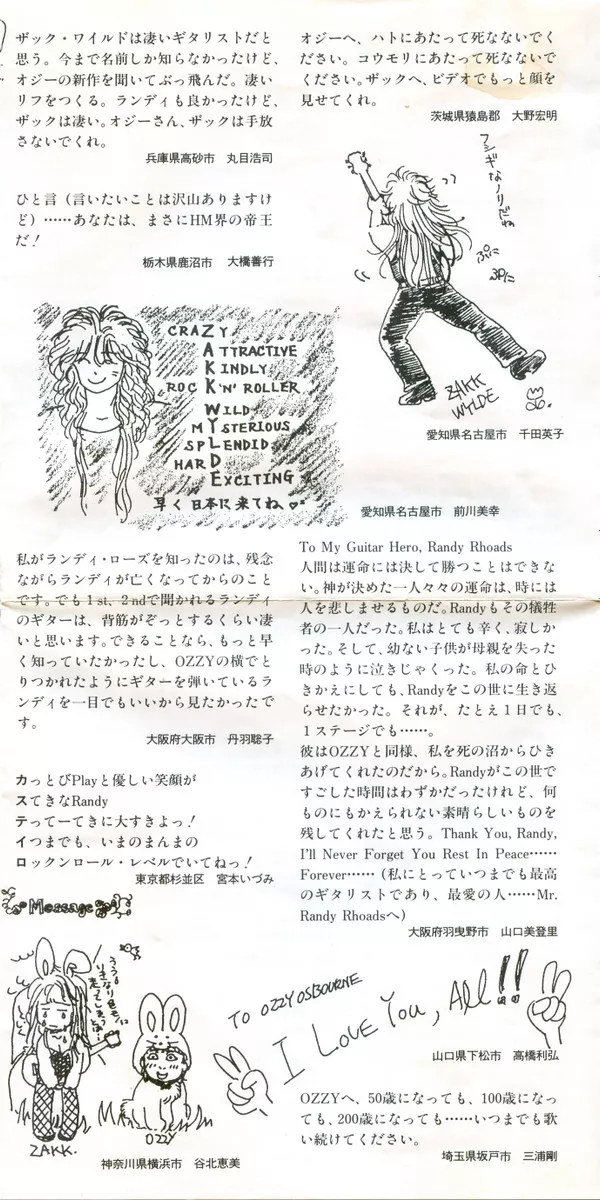 ザック・ワイルドは凄いギタリストだと
思う。今まで名前しか知らなかったけど、
オジーの新作を聞いてぶっ飛んだ。凄い
リフをつくる。ランディも良かったけど、
ザックは凄い。オジーさん、ザックは手放
さないでくれ。
兵庫県高砂市 丸目浩司
ひと言（言いたいことは沢山ありますけ
ど）……あなたは、まさにHM界の帝王
だ！
栃木県鹿沼市 大橋善行
オジーへ、ハトにあたって死なないでく
ださい。コウモリにあたって死なないで
でください。ザックへ、ビデオでもっと顔を
見せてくれ。
茨城県猿島郡 大野宏明
フシギなノリだね
ぷに
ぷに
ZAKK
WYLDE
愛知県名古屋市 千田英子
CRAZY
ATTRACTIVE
KINDLY
ROCK'N'ROLLER
WILD
MYSTERIOUS
SPLENDID
HARD
EXCITING
早く日本に来てね
愛知県名古屋市 前川美幸
私がランディ・ローズを知ったのは、残念
ながらランディが亡くなってからのこと
です。でも1st、2ndで聞かれるランディ
のギターは、背筋がぞっとするくらい凄
いと思います。できることなら、もっと早
く知っていたかったし、OZZYの横でと
りつかれたようにギターを弾いているラ
ンディを一目でもいいから見たかったで
す。
大阪府大阪市 丹羽聡子
カっとびPlayと優しい笑顔が
ステきなRandy
テってーてきに大すきよっ！
イつまでも、いまのまんまの
ロックンロール・レベルでいてねっ！
東京都杉並区 宮本いづみ
To My Guitar Hero, Randy Rhoads
人間は運命には決して勝つことはできな
い。神が決めた一人々々の運命は、時には
人を悲しませるものだ。Randyもその犠牲
者の一人だった。私はとても辛く、寂しか
った。そして、幼ない子供が母親を失った
時のように泣きじゃくった。私の命とひ
きかえにしても、Randyをこの世に生き返
らせたかった。それが、たとえ1日でも、
1ステージでも……。
彼はOZZYと同様、私を死の沼からひき
あげてくれたのだから。Randyがこの世で
すごした時間はわずかだったけれど、何
ものにもかえられない素晴らしいものを
残してくれたと思う。Thank You, Randy,
I'll Never Forget You Rest In Peace……
Forever……（私にとっていつまでも最高
のギタリストであり、最愛の人……Mr.
Randy Rhoadsへ）
大阪府羽曳野市 山口美登里
Message
ZAKK.
OZZY
神奈川県横浜市 谷北恵美
TO OZZY OSBOURNE
I LOVE YOU, All!!
山口県下松市 高橋利弘
OZZYへ、50歳になっても、100歳になっ
ても、200歳になっても……いつまでも歌
い続けてください。
埼玉県坂戸市 三浦剛